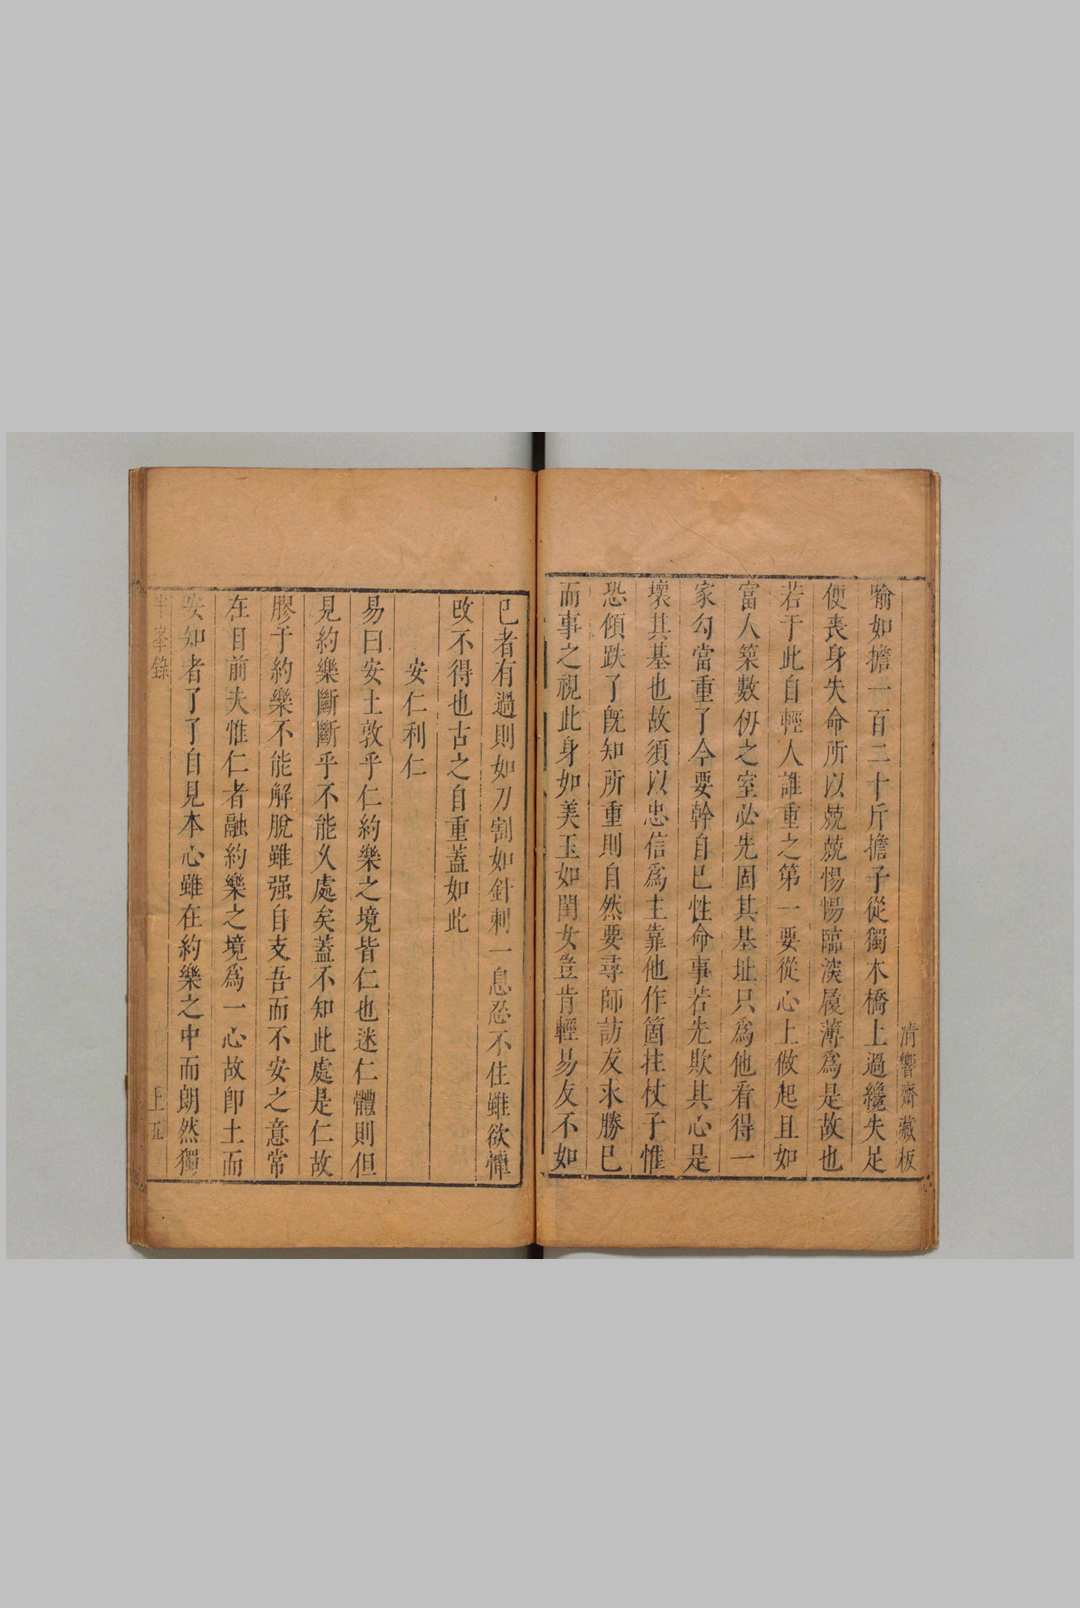 清響齋藏板
喻如擔一百二十斤擔子從獨木橋上過纔失足
便喪身失命所以兢兢惕惕臨深履薄爲是故也
若于此自輕人誰重之第一要從心上做起且如
富人築數仞之室必先固其基址只爲他看得一
家勾當重了今要幹自已性命事若先欺其心是
壞其基也故須以忠信爲主靠他作箇拄杖子惟
恐傾跌了旣知所重則自然要尋師訪友求勝巳
而事之視此身如美玉如閨女豈肯輕易友不如
巳者有過則如刀割如針刺一息忍不住雖欲憚
改不得也古之自重蓋如此
安仁利仁
易曰安土敦乎仁約樂之境皆仁也迷仁體則但
見約樂斷斷乎不能久處矣蓋不知此處是仁故
膠于約樂不能解脫雖强自支吾而不安之意常
在目前夫惟仁者融約樂之境爲一心故卽土而
安如者了了自見本心雖在約樂之中而朗然獨
峯錄
上
五